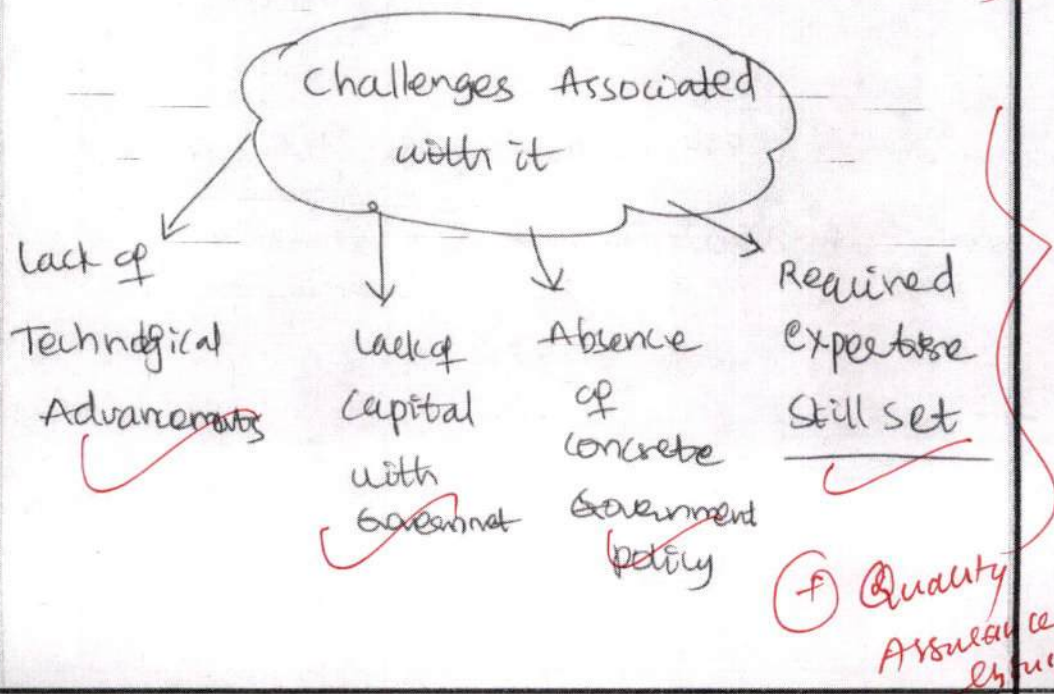 Challenges Associated
with it
Lack of
Technolgical
Advancements
Lack of
Capital
with
Governnet
Absence
of
concrete
Government
policy
Required
expertise
Skill set
+ Quality
Assurance